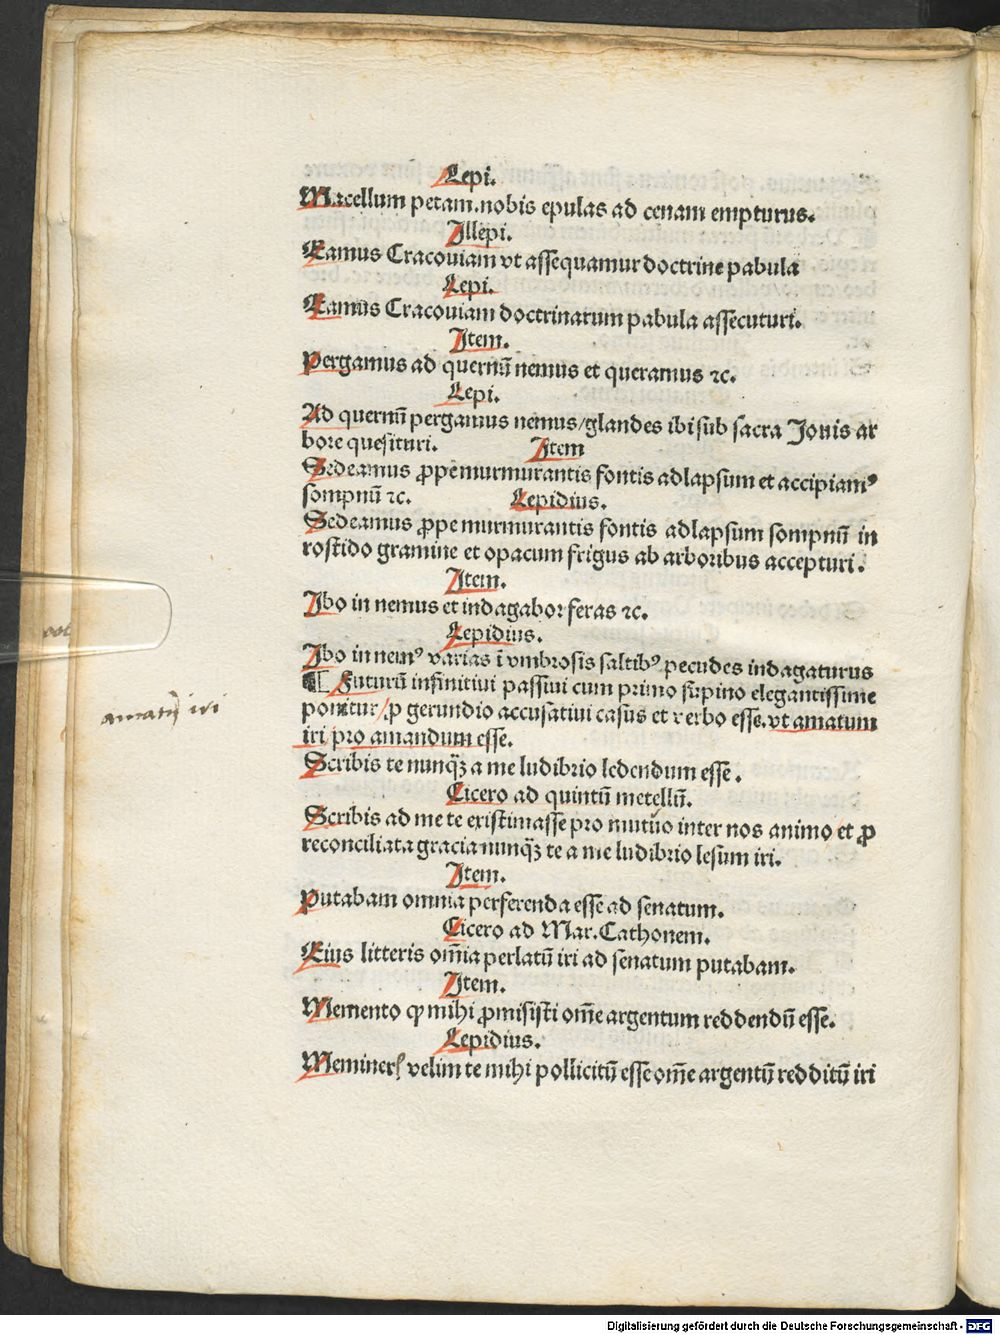 Lepi.
Macellum petam. nobis epulas ad cenam empturus.
Illepi.
Eamus Cracouiam vt assequamur doctrine pabula
Lepi.
Eamus Cracouiam doctrinarum pabula assecuturi.
Item.
Pergamus ad quernū nemus et queramus ⁊c.
Lepi.
Ad quernū pergamus nemus/glandes ibi sub sacra Jouis ar
bore quesituri. Item
Sedeamus ꝓpe murmurantis fontis adlapsum et accipiamꝰ
sompnū ⁊c. Lepidius.
Sedeamus ꝓpe murmurantis fontis adlapsum sompnū in
roscido gramine et opacum frigus ab arboribus accepturi.
Item.
Ibo in nemus et indagabor feras ⁊c.
Lepidius.
Ibo in nemꝰ varias ī vmbrosis saltibꝰ pecudes indagaturus
¶ Futurū infinitiui passiui cum primo supino elegantissime
ponitur/ꝓ gerundio accusatiui casus et verbo esse. vt amatum
iri pro amandum esse.
amatū iri
Scribis te nunqꝫ a me ludibrio ledendum esse.
Cicero ad quintū metellū.
Scribis ad me te existimasse pro mutuo inter nos animo et ꝓ
reconciliata gracia nunqꝫ te a me ludibrio lesum iri.
Item.
Putabam omnia perferenda esse ad senatum.
Cicero ad Mar. Cathonem.
Eius litteris om̄ia perlatū iri ad senatum putabam.
Item.
Memento ꝙ mihi ꝓmisisti om̄e argentum reddendū esse.
Lepidius.
Meminerꝭ velim te mihi pollicitū esse om̄e argentū redditū iri
Digitalisierung gefördert durch die Deutsche Forschungsgemeinschaft - DFG